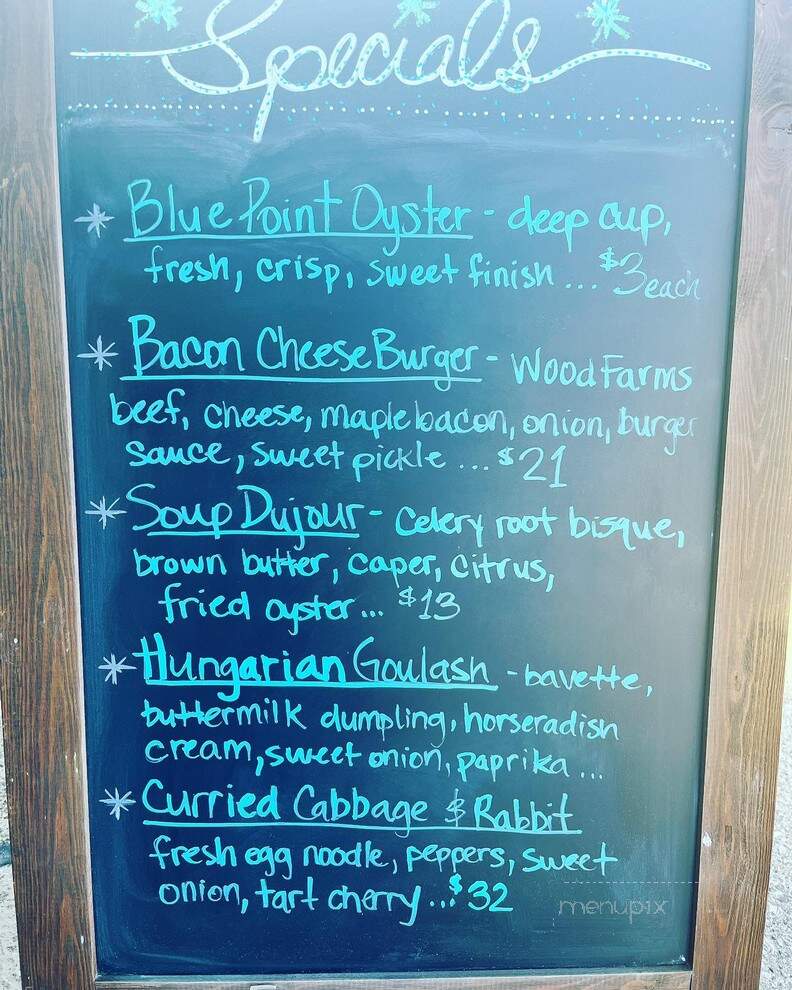 Specials
* Blue Point Oyster - deep cup,
fresh, crisp, sweet finish ... $3 each
* Bacon Cheese Burger - Wood Farms
beef, cheese, maple bacon, onion, burger
sauce, sweet pickle ... $21
* Soup Dujour - Celery root bisque,
brown butter, caper, citrus,
fried oyster ... $13
* Hungarian Goulash - bavette,
buttermilk dumpling, horseradish
cream, sweet onion, paprika ...
* Curried Cabbage & Rabbit
fresh egg noodle, peppers, sweet
onion, tart cherry ... $32
menupix